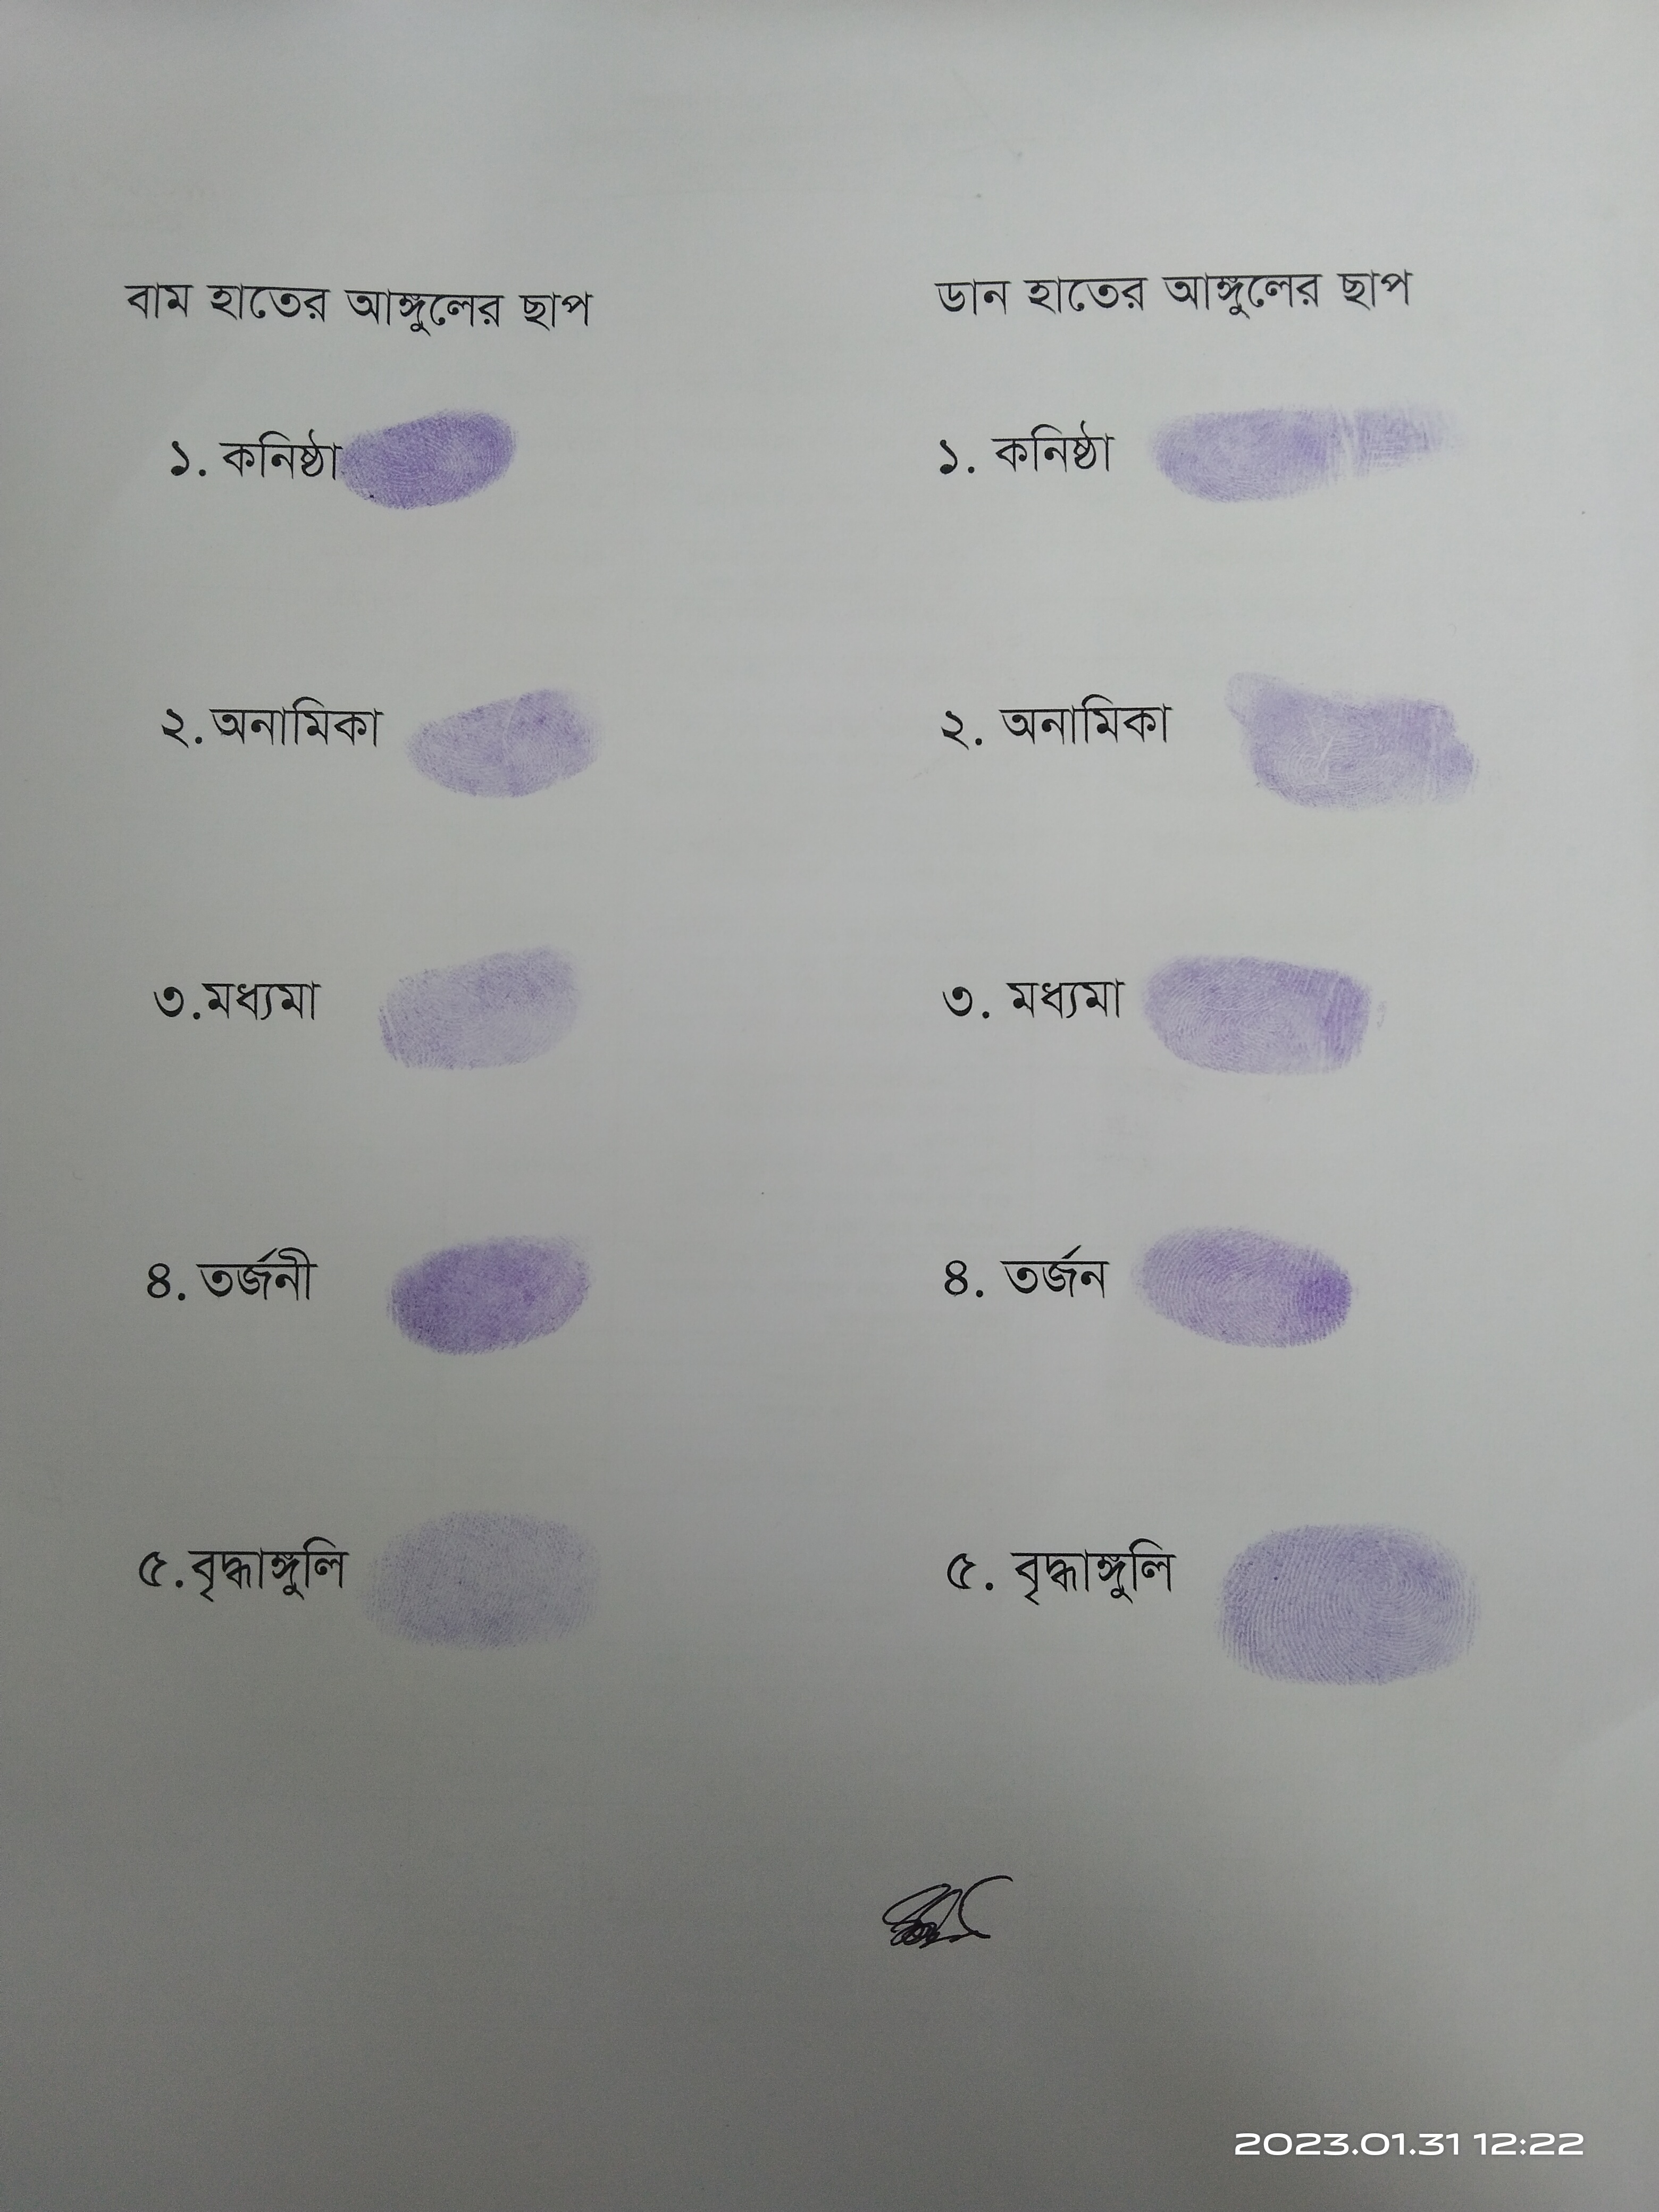 বাম হাতের আঙ্গুলের ছাপ
১. কনিষ্ঠা
২. অনামিকা
৩.মধ্যমা
৪. তর্জনী
৫.বৃদ্ধাঙ্গুলি
ডান হাতের আঙ্গুলের ছাপ
১. কনিষ্ঠা
২. অনামিকা
৩. মধ্যমা
৪. তর্জন
৫. বৃদ্ধাঙ্গুলি
2023.01.31 12:22